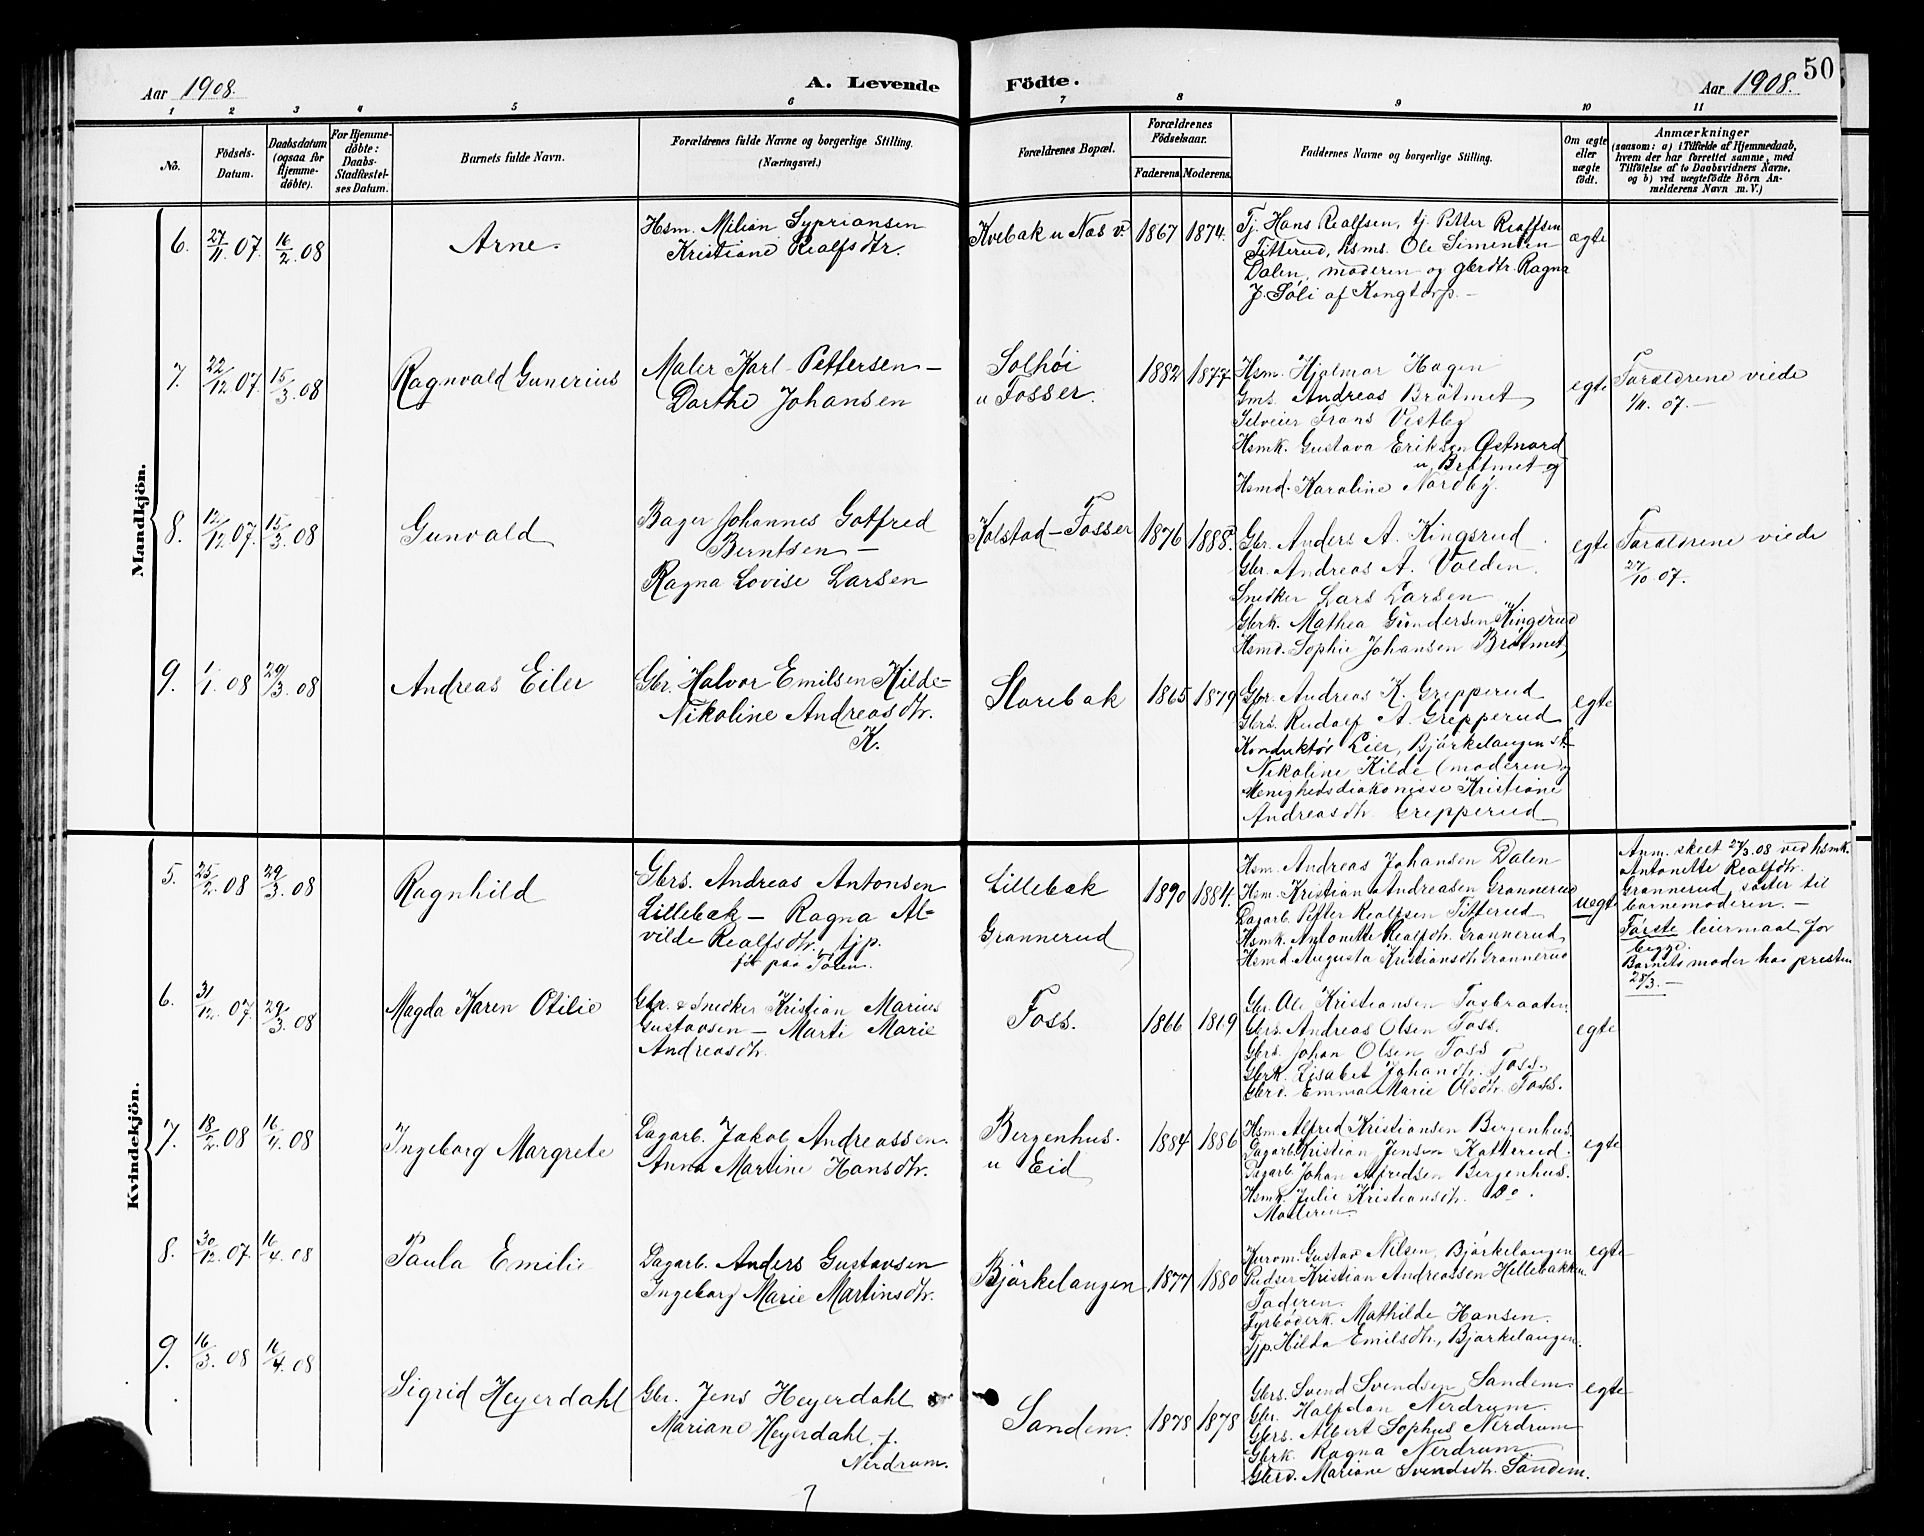 50
Aar 1908. A. Levende Födte. Aar 1908.
1 2 3 4 5 6 7 8 9 10 11
No. Födsels-Datum. Daabsdatum (ogsaa for Hjemme-döbte). For Hjemme-döbte: Daabs-Stadfæstel-ses Datum. Barnets fulde Navn. Forældrenes fulde Navne og borgerlige Stilling. (Næringsvei.) Forældrenes Bopæl. Forældrenes Födselsaar. Faderens. Moderens. Faddernes Navne og borgerlige Stilling. Om ægte eller uægte födt. Anmærkninger (saasom: a) i Tilfælde af Hjemmedaab, hvem der har forrettet samme, med Tilföielse af to Daabsvidners Navne, og b) ved uægtefödte Börn Anmelderens Navn m. V.)
Mandkjön.
6. 27/11 07. 16/2 08 Arne.
Hsm. Milian Sypriansen
Kristiane Realfsdtr.
Kvebak u Nas v. 1867 1874.
Tj. Hans Realfsen, tj. Petter Realfsen
Titterud, hsms. Ole Simensen
Dalen, moderen og gbrdtr. Ragna
J. Søli af Kongtorp. -
ægte
7. 22/12 07. 15/3 08 Ragnvald Gunerius
Maler Karl Pettersen -
Dorthe Johansen
Solhøi
u Fosser.
1882 1877
Hsm. Hjalmar Hagen
Gms. Andreas Bråtmet
Selveier Frans Vestby
Hsmk. Gustava Eriksen Østnord
u, Bråtmet og
Hsmd. Karoline Nordby.
egte
Forældrene viede
1/11. 07. -
8. 12/12 07. 15/3 08 Gunvald
Bager Johannes Gotfred
Berntsen -
Ragna Lovise Larsen
Kolstad - Fosser 1876 1888.
Gbr. Anders A. Kingsrud
Gbr. Andreas A. Valden.
Snedker Lars Larsen
Gbrk. Mathea Gundersen Kingsrud
Hsmd. Sophie Johansen Bråtmet
egte
Forældrene viede
27/10. 07.
9. 1/1 08 29/3 08 Andreas Eiler
Gbr. Halvor Emilsen Kilde -
Nikoline Andreasdtr.
K.
Starebak 1865 1879
Gbr. Andreas K. Grepperud
Gbrs. Rudolf A. Grepperud
Konduktør Lier, Bjørkelangen st -
Nikoline Kilde (moderen) og
Menighedsdiakonisse Kristiane
Andreasdtr. Grepperud
egte
Kvindekjön.
5. 25/2 08 29/3 08 Ragnhild
Gbrs. Andreas Antonsen
Lillebak - Ragna Al-
vilde Realfsdtr., tjp.
før paa Tolen.
Lillebak
Grannerud
1890 1884.
Hsm. Andreas Johansen Dalen
Hsm. Kristian Andreasen Grannerud
Dagarb. Petter Realfsen Titterud
Hsmk. Antonette Realfsdtr. Grannerud
Hsmd. Augusta Kristiansdtr Grannerud
uegte
Anm. skeet 27/3. 08 ved hsmk.
Antonette Realfsdtr.
Grannerud, søster til
barnemoderen. -
Første leiermaal for
begge.
Barnets moder hos presten
28/3. -
6. 31/12 07 29/3 08 Magda Karen Otilie
Gbr. & Snedker Kristian Marius
Gustavsen - Marti Marie
Andreasdtr.
Foss. 1866 1869
Gbr. Ole Kristiansen Fosbraaten.
Gbrs. Andreas Olsen Foss.
Gbrs. Johan Olsen Foss
Gbrk. Lisabet Johandtr. Foss.
Gbrd. Emma Marie Olsdtr. Foss.
egte
7. 18/2 08 16/4. 08 Ingeborg Margrete
Dagarb. Jakob Andreassen.
Anna Martine Hansdtr.
Bergenhus.
u Eid
1884 1886
Hsm. Alfred Kristiansen Bergenhus
Dagarb. Kristian Jensen Katterud.
Dagarb. Johan Alfredsen Bergenhus.
Hsmk. Julie Kristiansdtr. Do.
Moderen.
egte
8. 30/12 07. 16/4. 08 Paula Emilie
Dagarb. Anders Gustavsen
Ingeborg Marie Martinsdtr.
Bjørkelangen 1877 1880
Gustav Nilsen, Bjørkelangen
Pudser Kristian Andreassen Hellebakken.
Faderen.
Fyrbøderk. Mathilde Hansen.
Tjp. Hilda Emilsdtr., Bjørkelangen.
egte
9. 16/3. 08 16/4. 08
Sigrid Heyerdahl
Gbr. Jens Heyerdahl
Mariane Heyerdahl f.
Nerdrum.
Sandem. 1878 1878
Gbrs. Svend Svendsen Sandem.
Gbr. Halfdan Nerdrum.
Gbrs. Albert Sophus Nerdrum
Gbrk. Ragna Nerdrum
Gbrd. Mariane Svendsdtr. Sandem.
egte